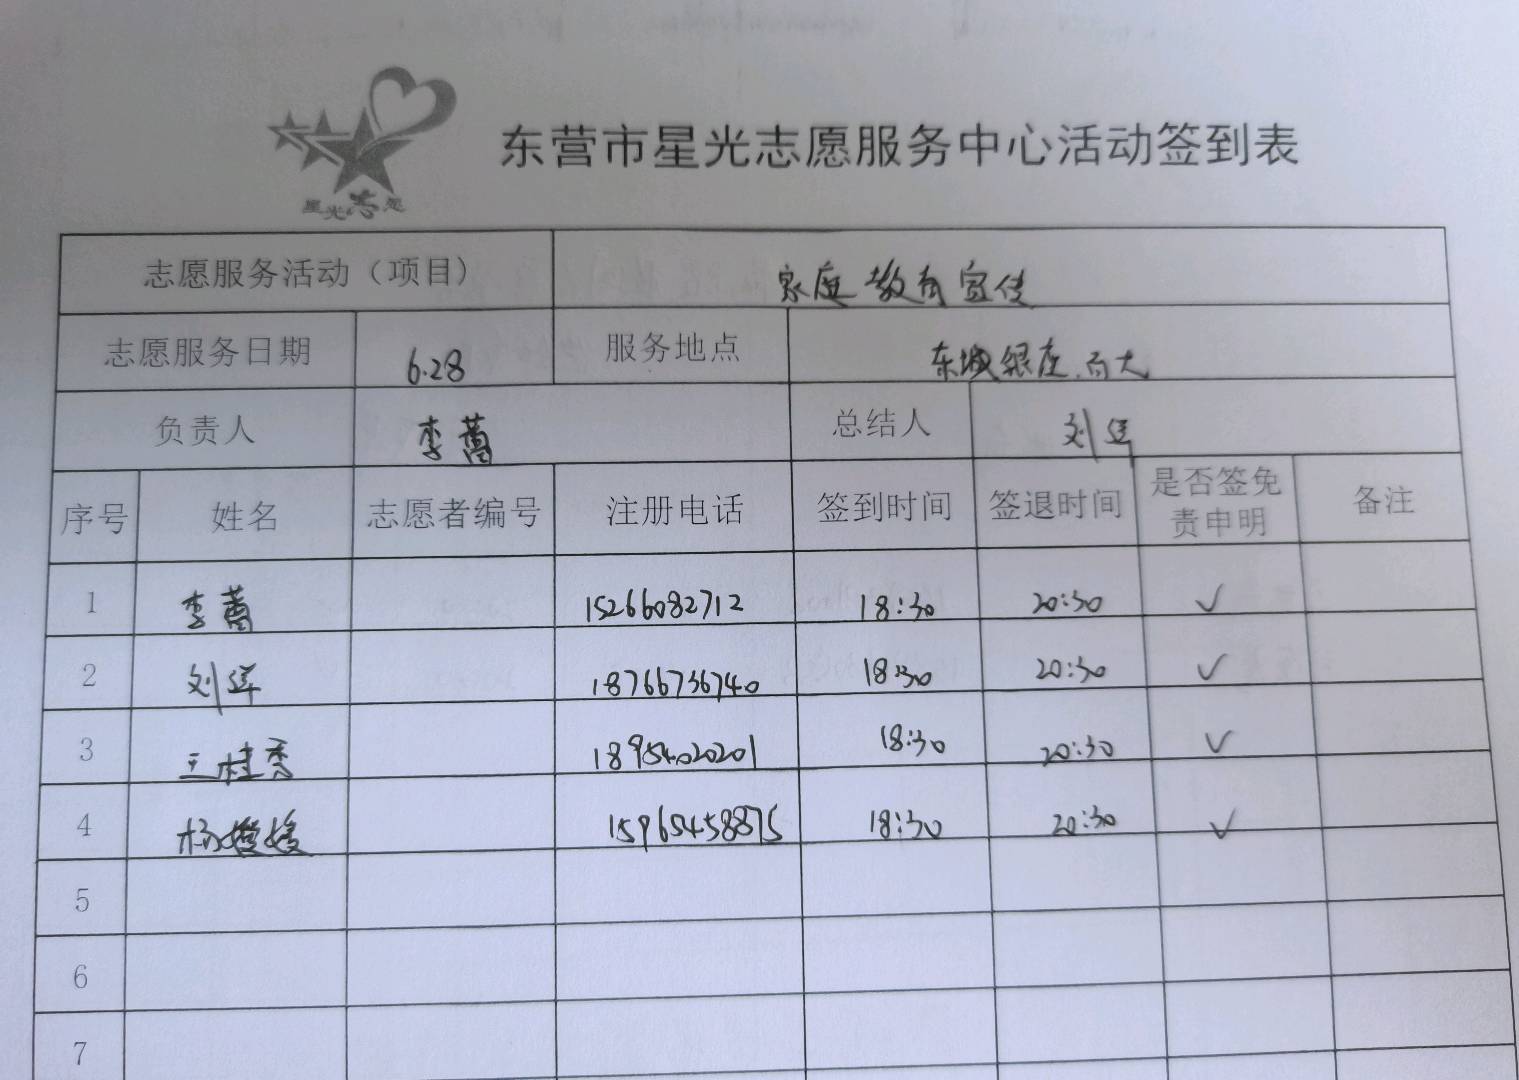 星光志愿
东营市星光志愿服务中心活动签到表
志愿服务活动（项目） 家庭教育宣传
志愿服务日期 6.28 服务地点 东城银座.百大
负责人 李蔷 总结人 刘
序号 姓名 志愿者编号 注册电话 签到时间 签退时间 是否签免责申明 备注
1 李蔷 15266082712 18:30 20:30 ✓
2 刘 18766736740 18:30 20:30 ✓
3 王桂秀 18954020201 18:30 20:30 ✓
4 杨媛媛 15965458875 18:30 20:30 ✓
5
6
7